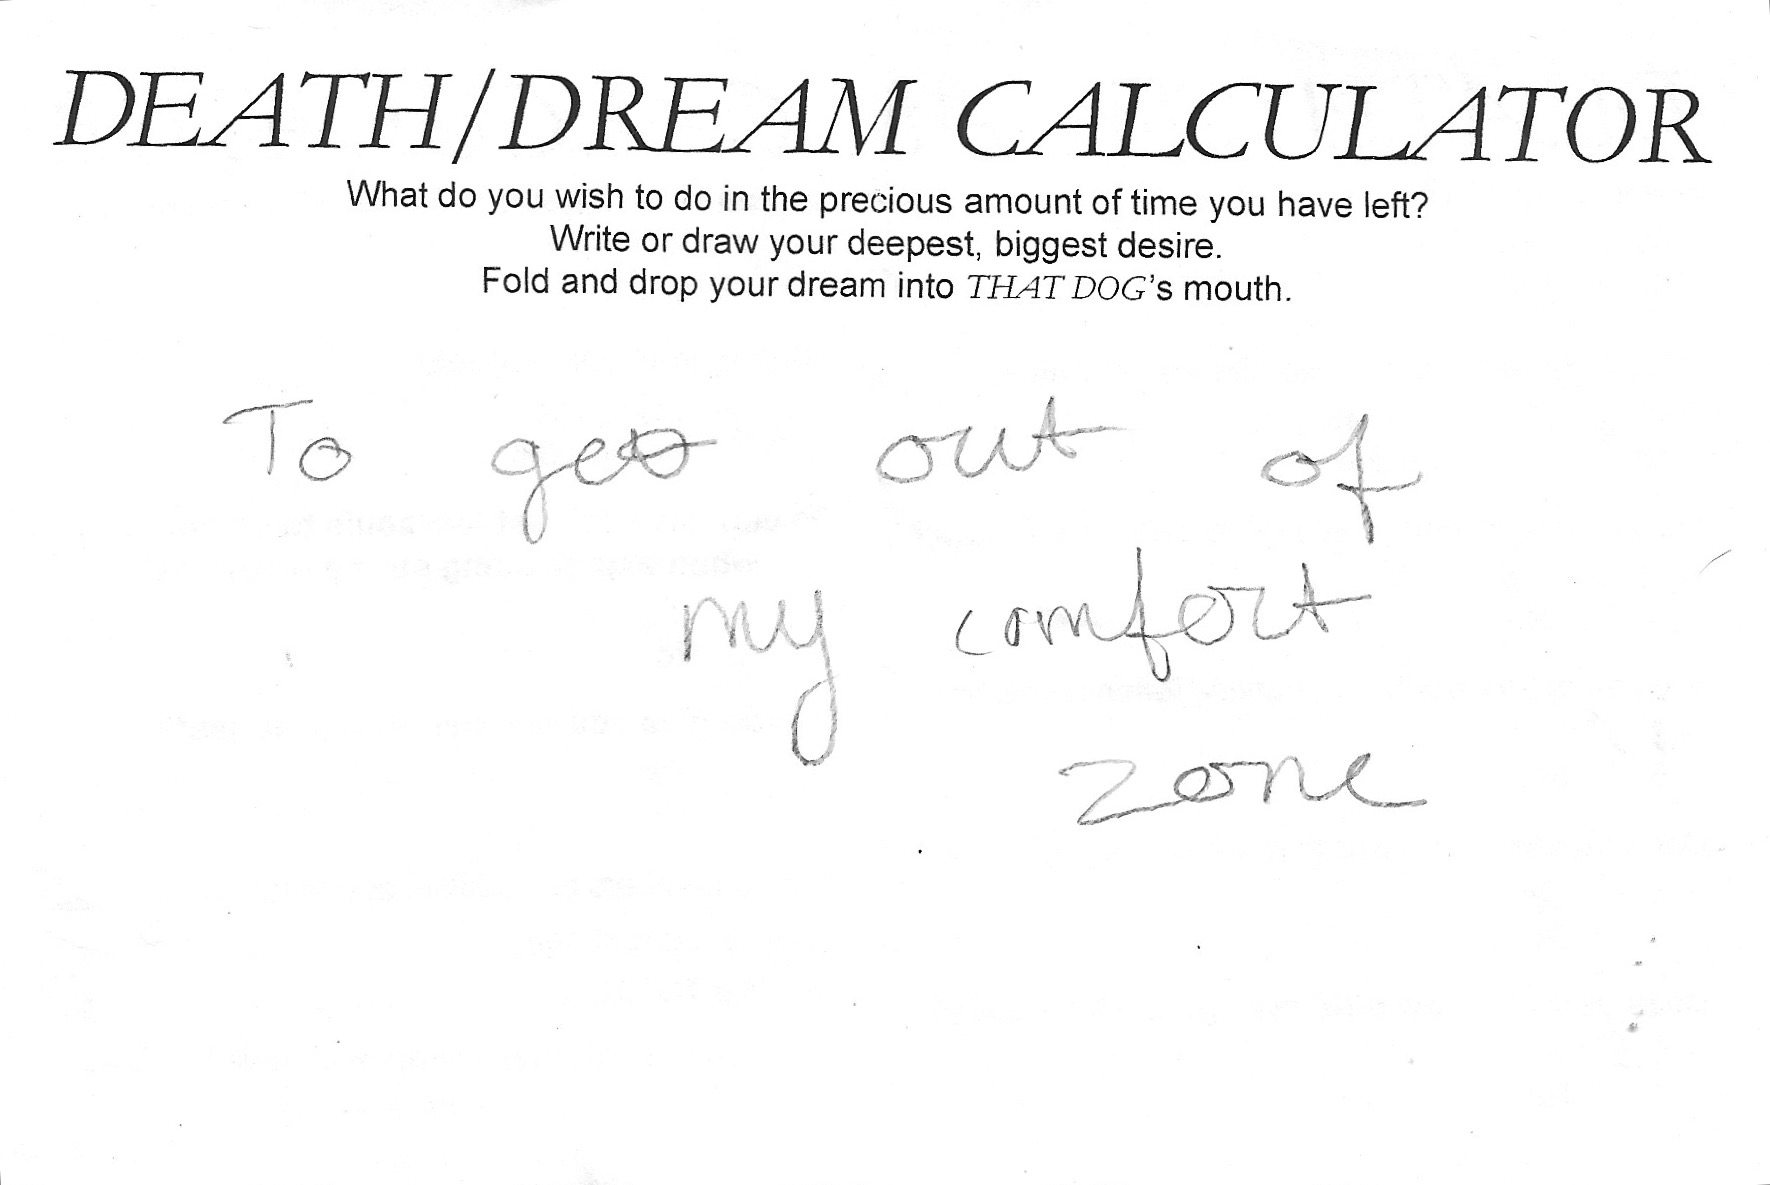 DEATH/DREAM CALCULATOR
What do you wish to do in the precious amount of time you have left?
Write or draw your deepest, biggest desire.
Fold and drop your dream into THAT DOG's mouth.
To get out of
my comfort
zone